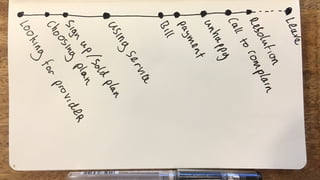 Looking for provider
Choosing plan
Sign up/sold plan
using service
Bill
payment
unhappy
Call to complain
Resolution
Leave